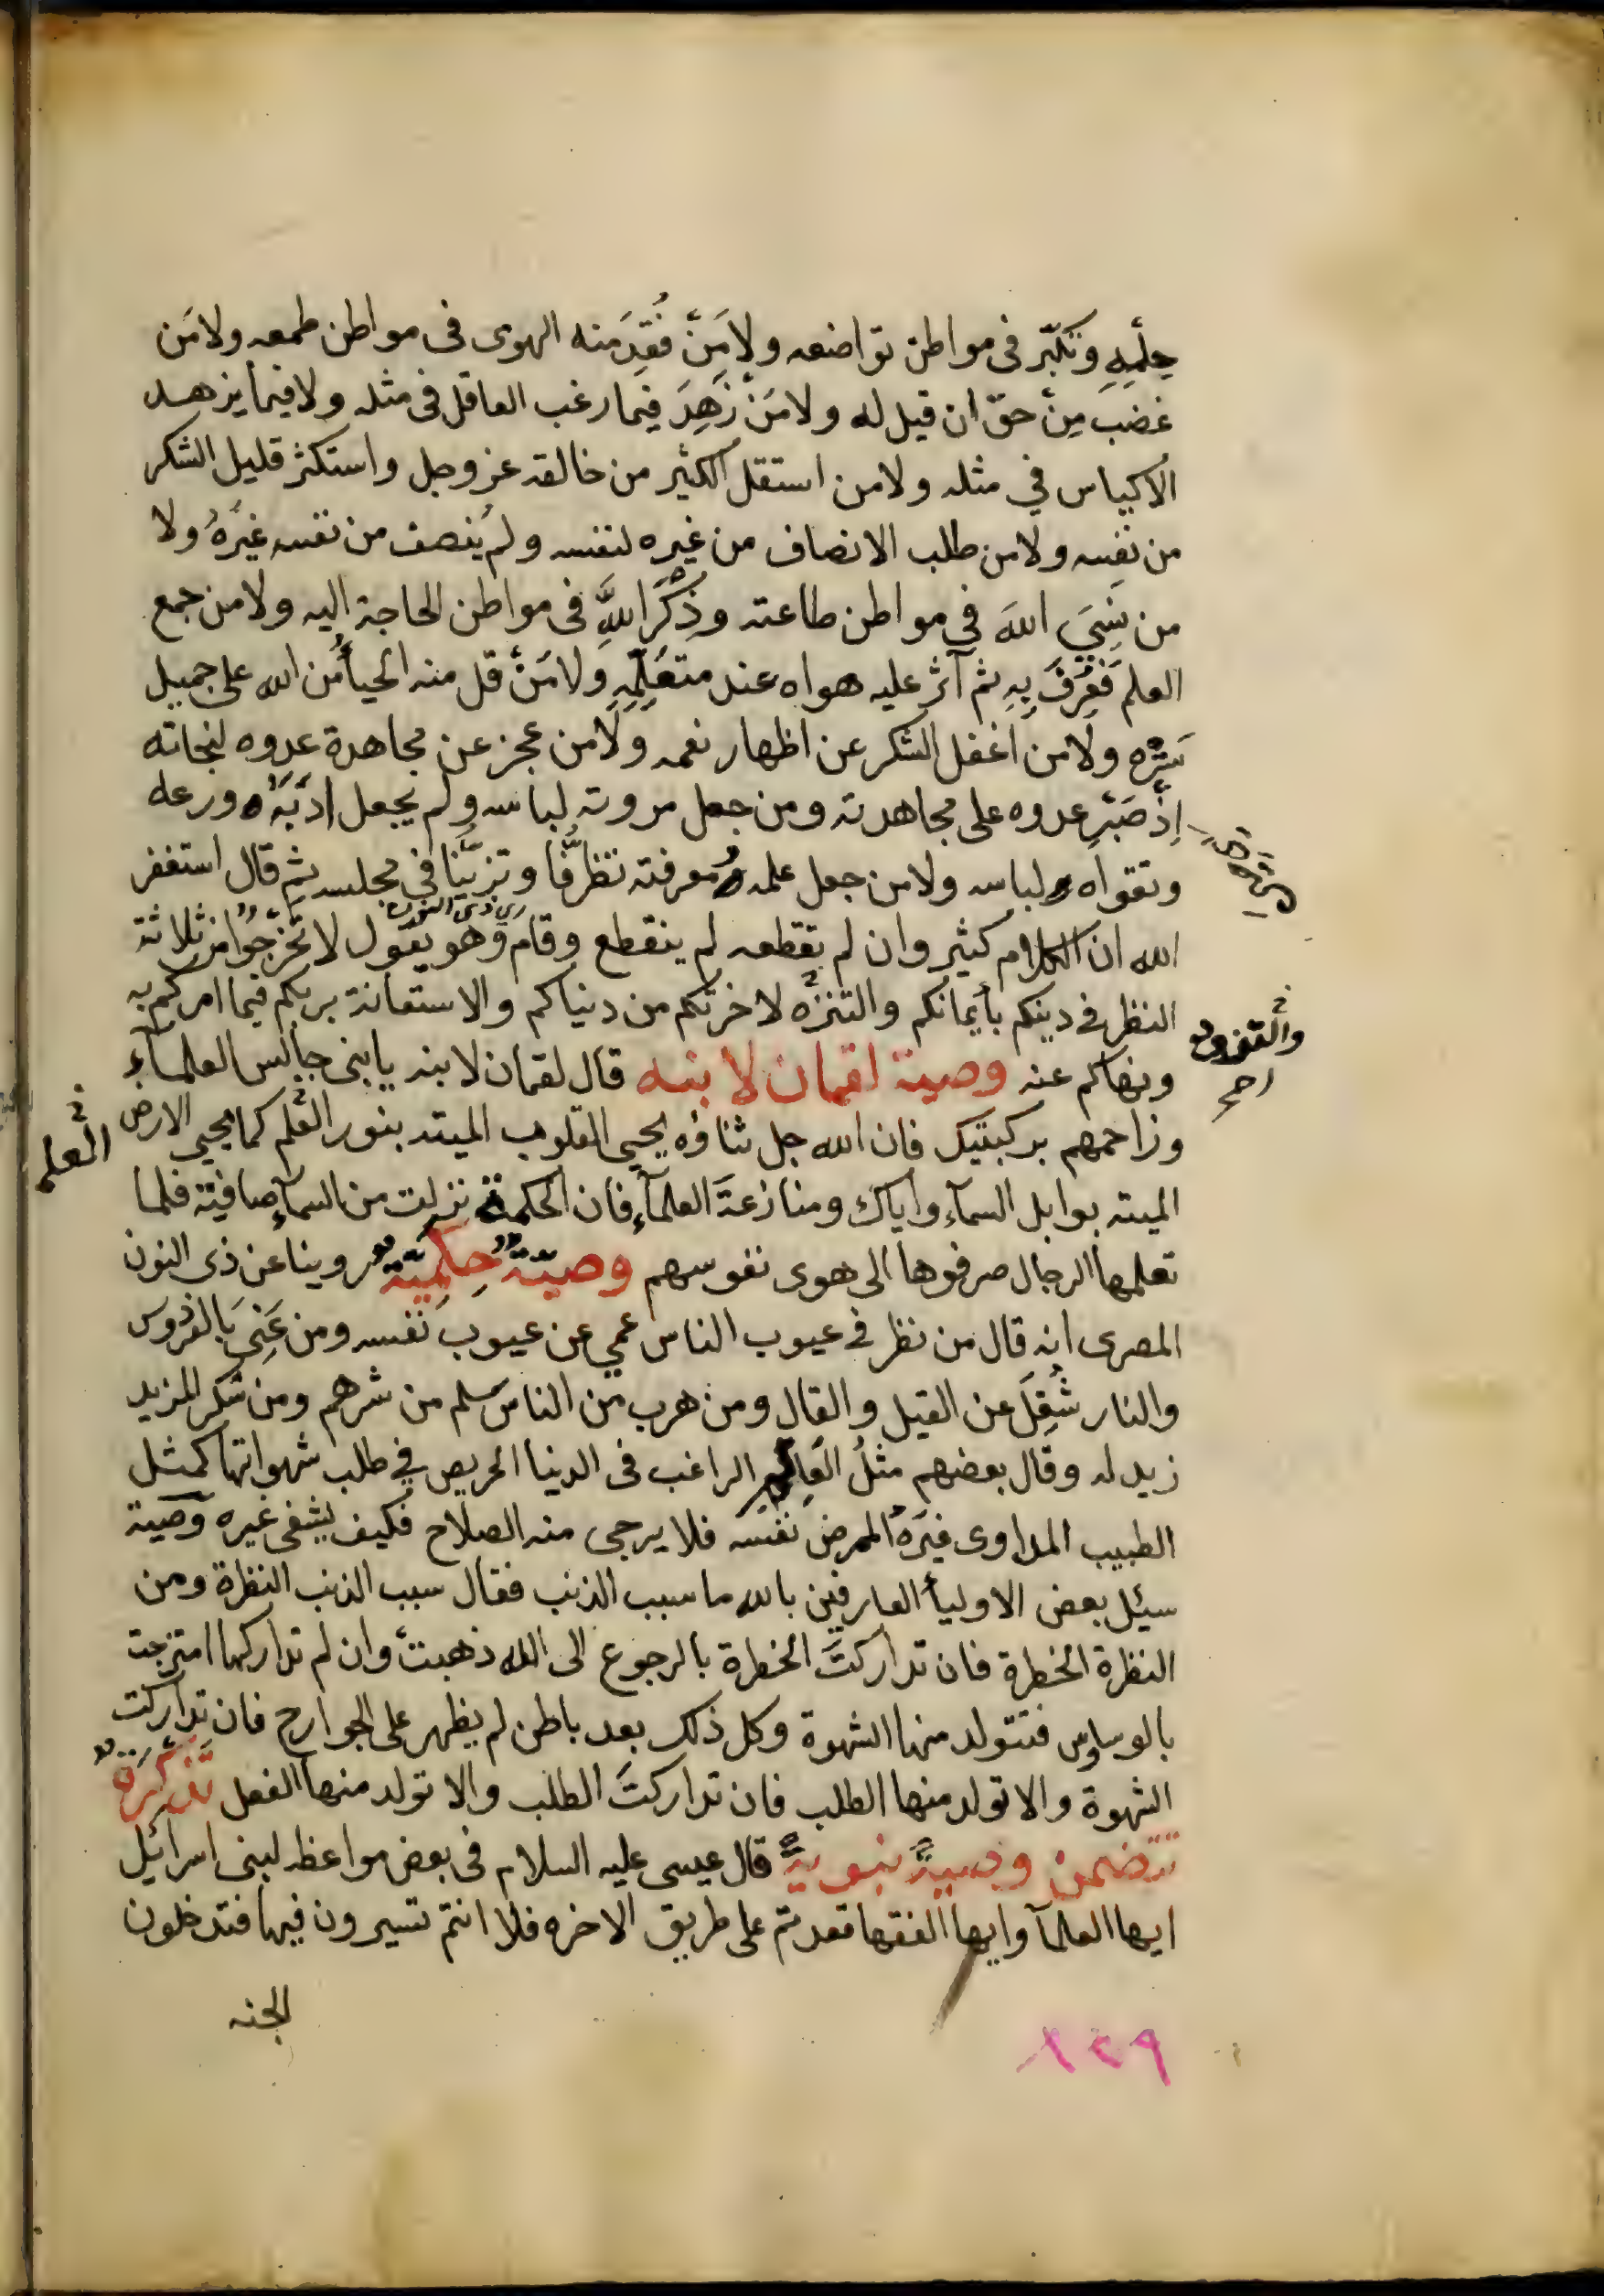 حِلْمِهِ وتكبّر في مواطن تواضعه ولا مَنْ فُقِدَ منه الهوى في مواطن طمعه ولا مَن
غضبَ مِنْ حقّ ان قيل له ولا مَنْ زَهِدَ فيما رغب العاقل في مثله ولا فيما يزهد
الاكياس في مثله ولا من استقل الكثير من خالقه عز وجل واستكثر قليل الشكر
من نفسه ولا من طلب الانصاف من غيره لنفسه ولم يُنصف من نفسه غيرَهُ ولا
من نَسِيَ اللهَ في مواطن طاعته وذكَرَ اللهَ في مواطن الحاجة اليه ولا من جمع
العلم فَعُرِفَ بِهِ ثم آثر عليه هواه عند متعَلِّمِهِ ولا مَنْ قل منه الحياءُ من الله على جميل
سَتْرِه ولا من اغفل الشكر عن اظهار نعمه ولا من عجز عن مجاهدة عدوه لنجاته
اِذْ صَبَرَ عدوه على مجاهدته ومن جعل مروته لباسه ولم يجعل ادَبَهُ ورعه
وتقواه لباسه ولا من جعل علمه ومعرفته تظرُّفًا وتزيّنًا في مجلسه ثم قال استغفر
الله ان الكلام كثير وان لم تقطعه لم ينقطع وقام وهو يقول لا تخرجُوا من ثلاثة
النظر في دينكم بأيمانكم والتنزّه لاخرتكم من دنياكم والاستعانة بربكم فيما امركم به
ونهاكم عنه وصية لقمان لابنه قال لقمان لابنه يابنى جالس العلمآء
وزاحمهم بركبتيك فان الله جل ثناؤه يحيى القلوب الميته بنور العلم كما يحيى الارض
العلم
الميته بوابل السمآء واياك ومنازعةَ العلمآءِ فان الحكمة نزلت من السمآءِ صافية فلما
تعلمها الرجال صرفوها الى هوى نفوسهم وصيّةٌ حِكَمِيّةٌ روينا عن ذى النون
المصرى انه قال من نظر في عيوب الناس عمي عن عيوب نفسه ومن عَنِيَ بالفردوس
والنار شُغِلَ عن القيل والقال ومن هرب من الناس سلم من شرهم ومن شكر المزيد
زيد له وقال بعضهم مثلُ العَالِمِ الراغب في الدنيا الحريص في طلب شهواتها كمثل
الطبيب المداوى غيرَهُ الممرض نفسَه فلا يرجى منه الصلاح فكيف يشفى غيره وصية
سيئل بعض الاوليأ العارفين بالله ما سبب الذنب فقال سبب الذنب النظرة ومن
النظرة الخطرة فان تداركتَ الخطرة بالرجوع الى الله ذهبتْ وان لم تداركها امتزجت
بالوساوس فتتولد منها الشهوة وكل ذلك بعد باطن لم يظهر على الجوارح فان تداركت
الشهوة والا تولد منها الطلب فان تداركتَ الطلب والا تولد منها الفعل تَذْكِرَةٌ
تتضمن وصيةً نبويةً قال عيسى عليه السلام في بعض مواعظه لبنى اسرائيل
ايها العلمآ وايها الفقها قعدتم على طريق الاخره فلا انتم تسيرون فيها فتدخلون
الجنه